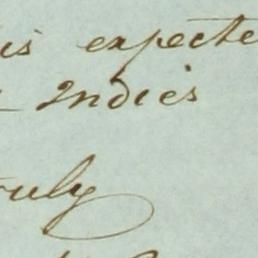 is expecte
Indies
ruly